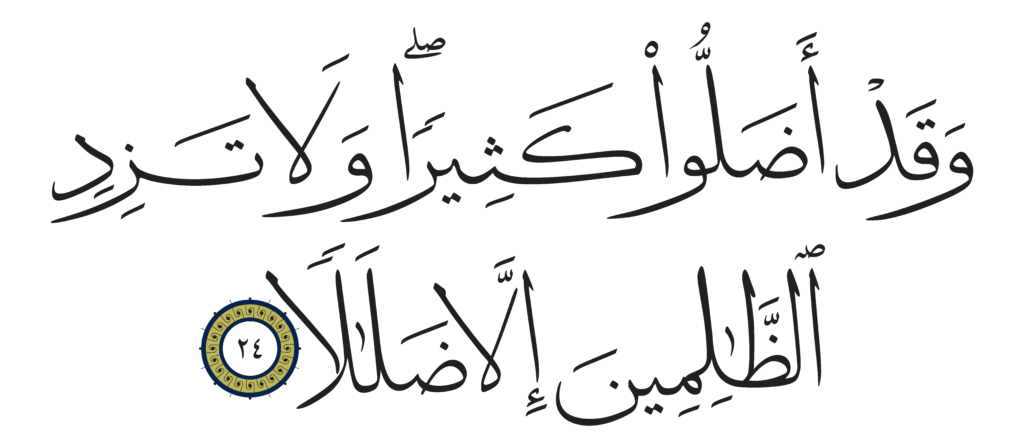 وَقَدْ أَضَلُّوا۟ كَثِيرًۭا ۖ وَلَا تَزِدِ
ٱلظَّٰلِمِينَ إِلَّا ضَلَٰلًۭا ٢٤